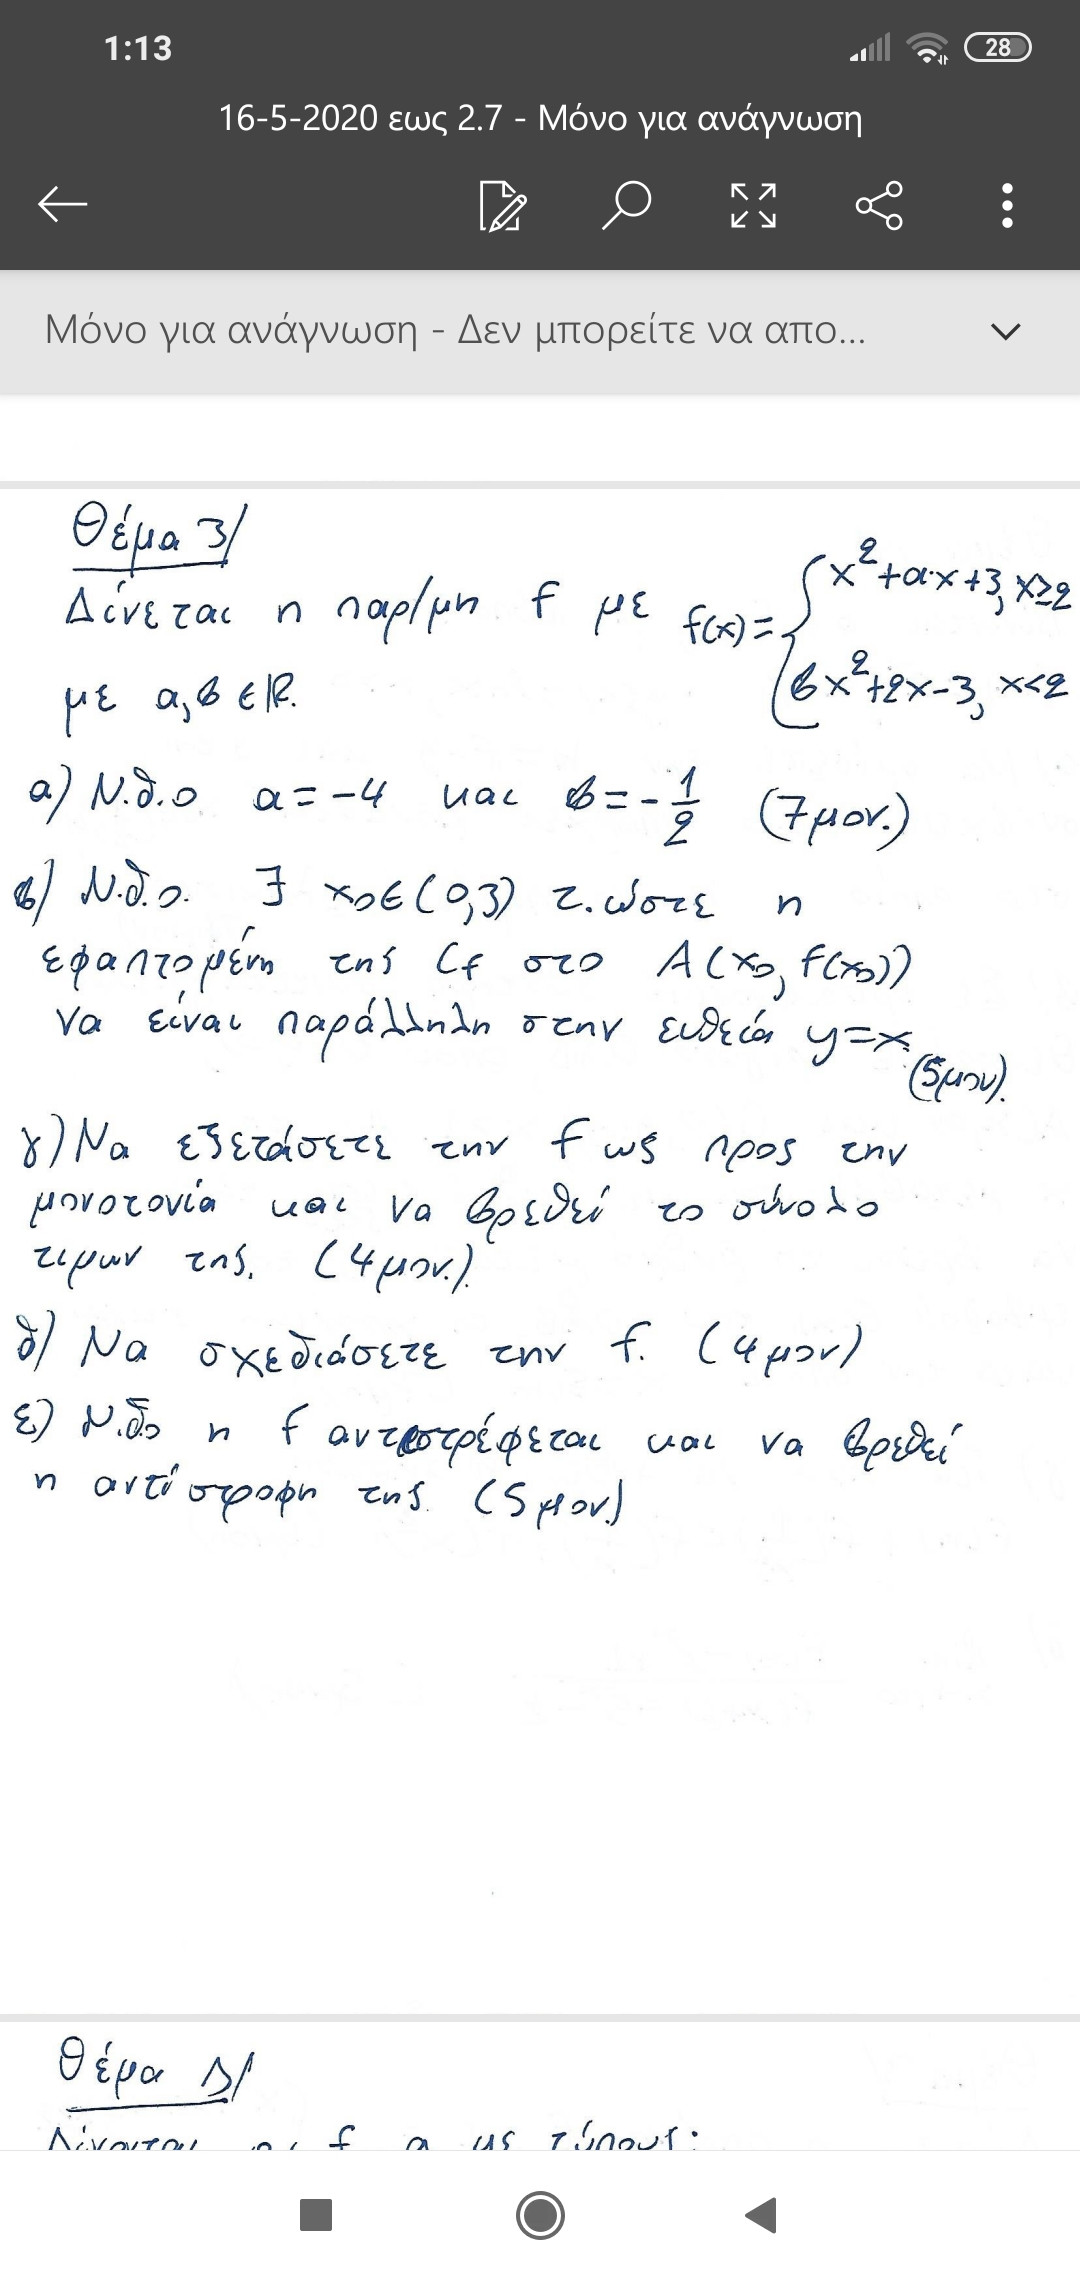 1:13
28
16-5-2020 εως 2.7 - Μόνο για ανάγνωση
Μόνο για ανάγνωση - Δεν μπορείτε να απο...
Θέμα 3/
Δίνεται η παρ/μη f με f(x)= { x²+α·x+3, x≥2
με α,β ∈ℝ. βx²+2x-3, x<2
α) Ν.δ.ο α=-4 και β=-1/2 (7μον.)
β) Ν.δ.ο. ∃ x₀∈(0,3) τ.ώστε η
εφαπτομένη της Cf στο A(x₀, f(x₀))
να είναι παράλληλη στην ευθεία y=x.
(5μον).
γ) Να εξετάσετε την f ως προς την
μονοτονία και να βρεθεί το σύνολο
τιμων της. (4μον.)
δ) Να σχεδιάσετε την f. (4μον)
ε) Ν.δο η f αντιστρέφεται και να βρεθεί
η αντίστροφη της. (5μον.)
Θέμα Δ/
Δίνονται οι f, g με τύπους: